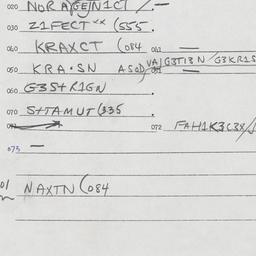 020 NORAYGEJN1CT / —
030 Z1FECT xx (555.
060 KRAXCT (084 061 —
050 KRA·SN ASOD, VA1G3T13N/G3KR1S
060 G3S+R1GN
070 S+TAMUT (335
072 FAH1K3C3X/
073 —
01 NAXTN (084